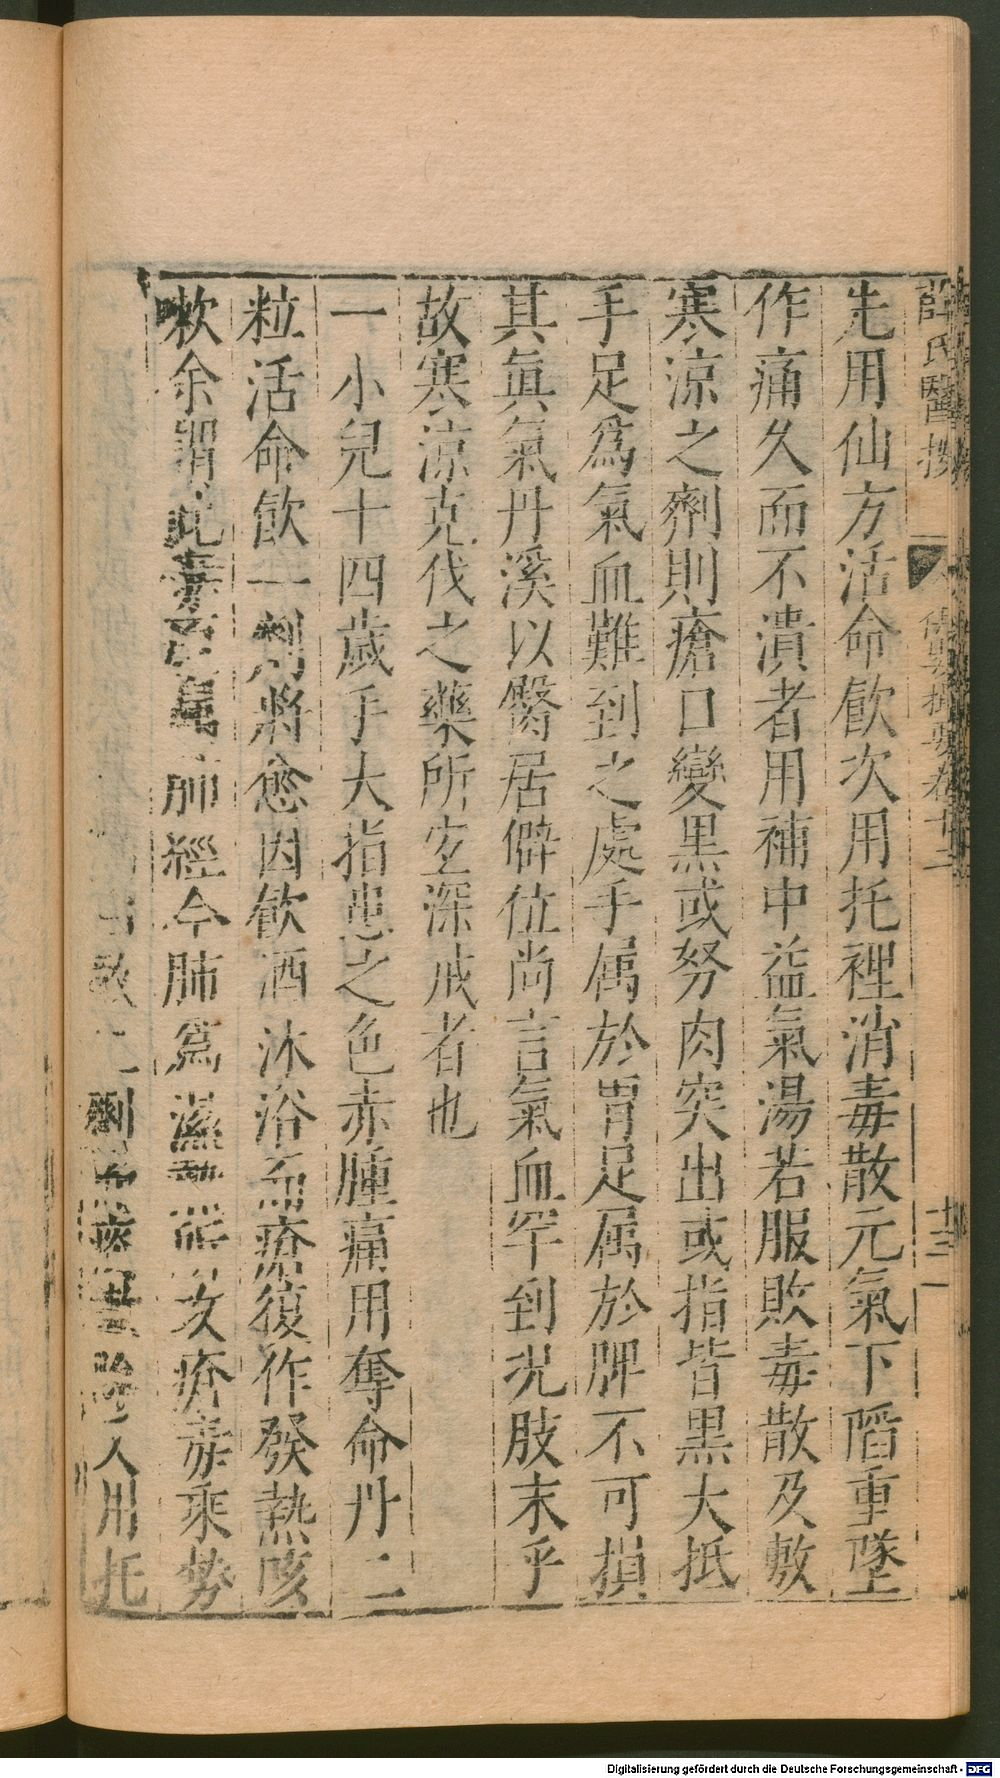 薛氏醫按 保嬰撮要卷十二 十三
先用仙方活命飮次用托裡消毒散元氣下陷重墜
作痛久而不潰者用補中益氣湯若服敗毒散及敷
寒涼之劑則瘡口變黑或努肉突出或指皆黑大抵
手足爲氣血難到之處手属於胃足属於脾不可損
其眞氣丹溪以臀居僻位尚言氣血罕到况肢末乎
故寒涼克伐之藥所宜深戒者也
一小兒十四歲手大指患之色赤腫痛用奪命丹二
粒活命飮一劑將愈因飮酒沐浴兩瘡復作發熱咳
嗽余謂此毒屬肺經今肺爲濕熱攻瘡毒乘勢
散二劑人用托
Digitalisierung gefördert durch die Deutsche Forschungsgemeinschaft - DFG